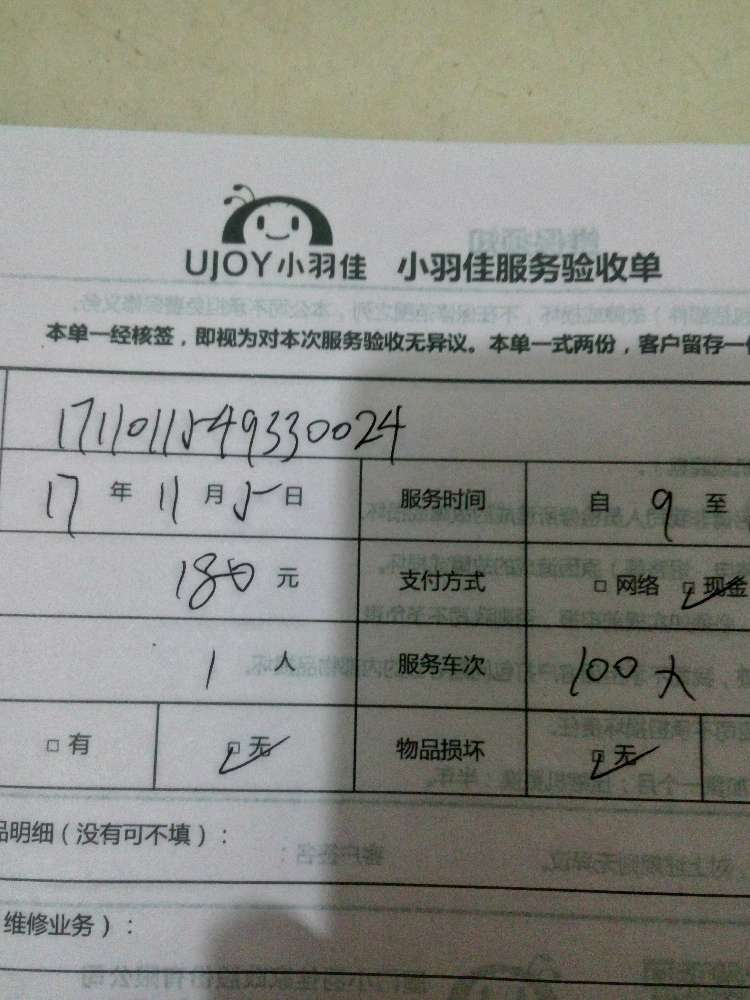 UJOY小羽佳 小羽佳服务验收单
本单一经核签，即视为对本次服务验收无异议。本单一式两份，客户留存一
1711011549330024
17 年 11 月 5 日 服务时间 自 9 至
180 元 支付方式 □ 网络 □ 现金
1 人 服务车次 100
□ 有 □ 无 物品损坏 □ 无
品明细（没有可不填）：
维修业务）：